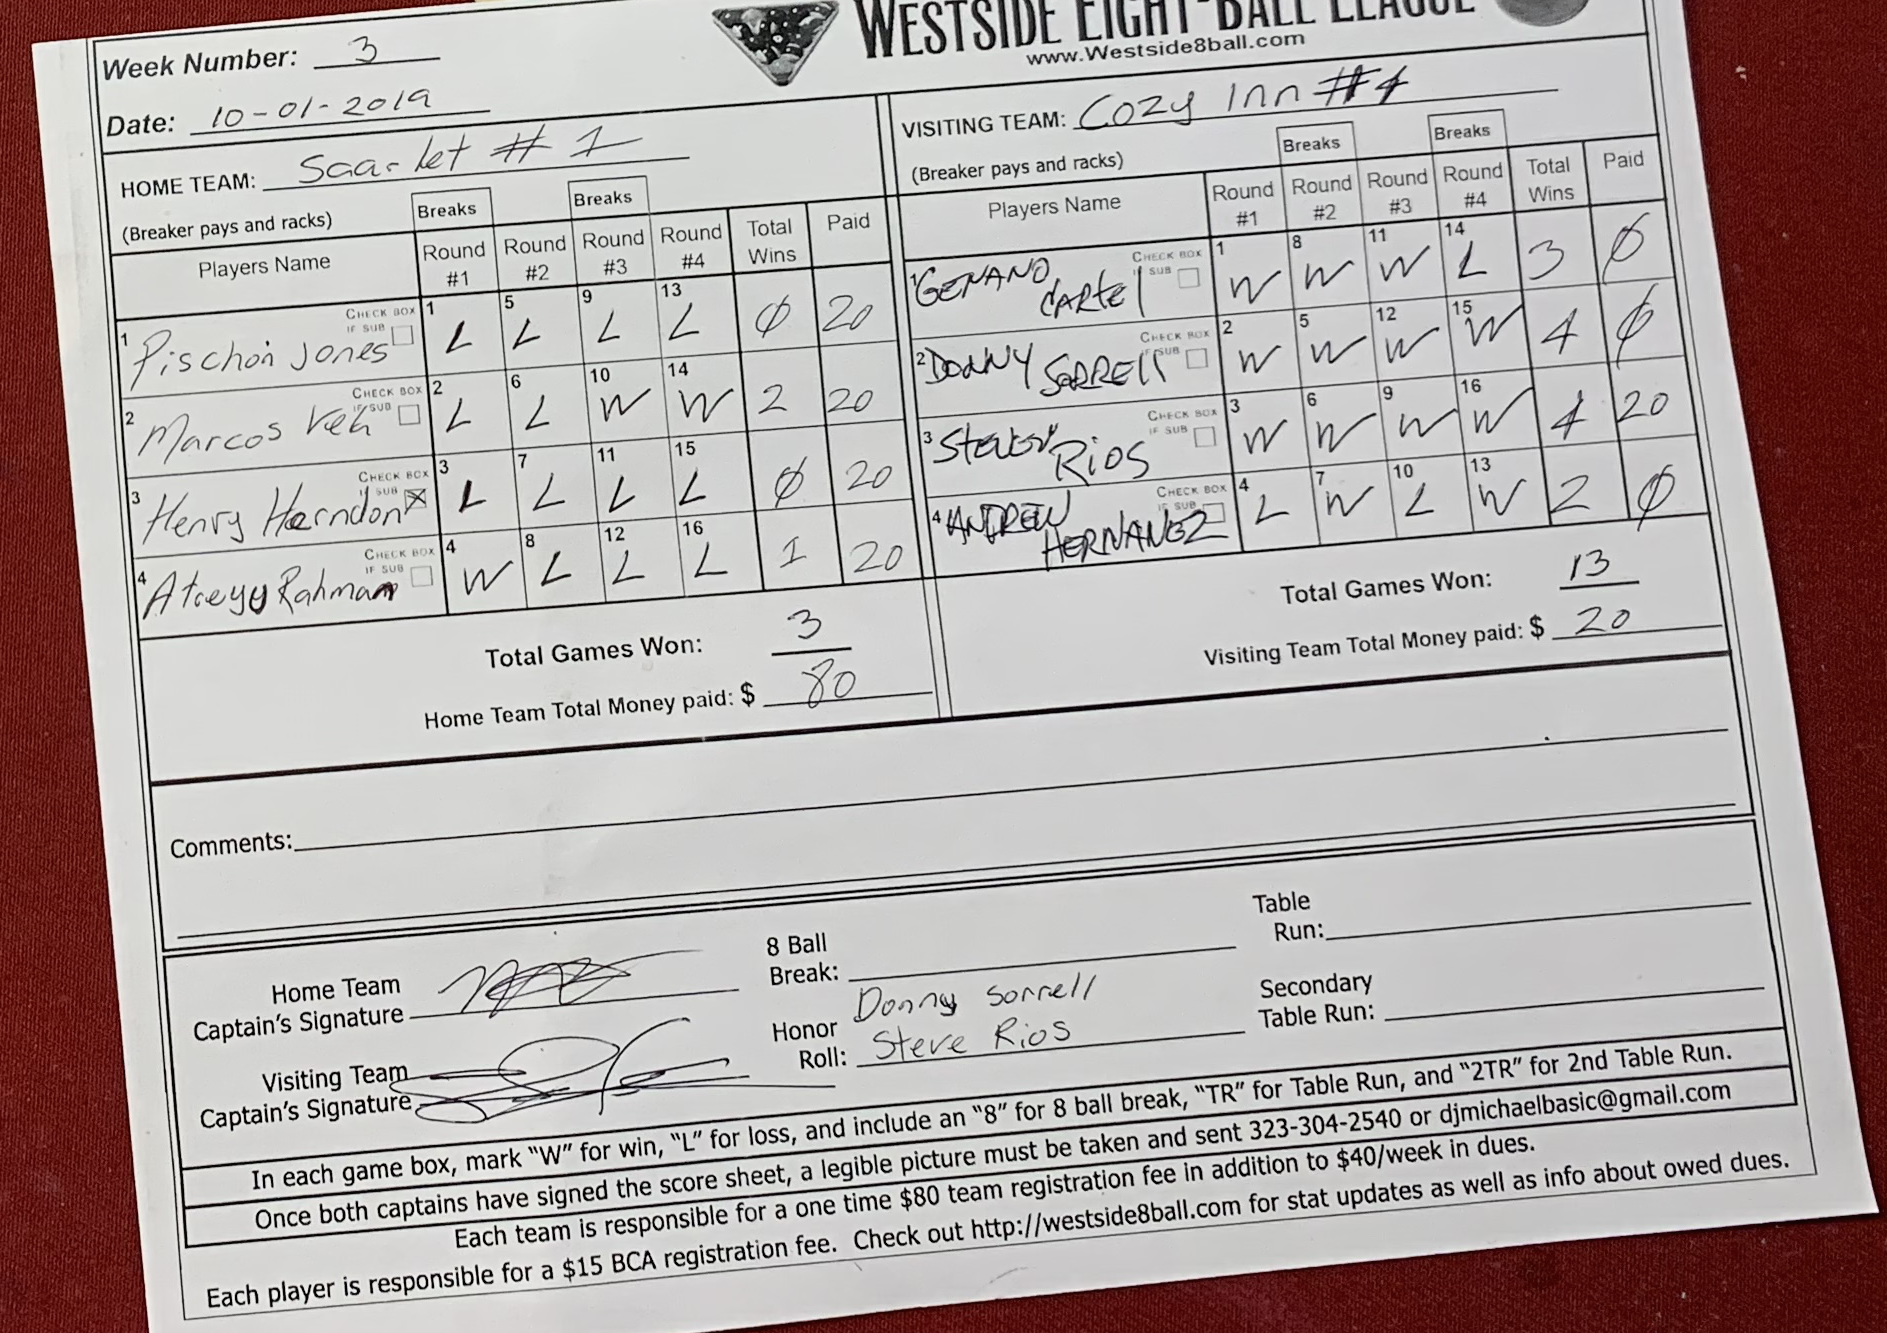 WESTSIDE EIGHT-BALL LEAGUE
www.Westside8ball.com
Week Number: 3
Date: 10-01-2019
HOME TEAM: Scarlet # 1
(Breaker pays and racks)
Breaks Breaks
Players Name Round #1 Round #2 Round #3 Round #4 Total Wins Paid
1 Pischon Jones CHECK BOX IF SUB 1 L 5 L 9 L 13 L 0 20
2 Marcos CHECK BOX IF SUB 2 L 6 L 10 W 14 W 2 20
3 Henry Herndon CHECK BOX IF SUB X 3 L 7 L 11 L 15 L 0 20
4 Atreyu Rahman CHECK BOX IF SUB 4 W 8 L 12 L 16 L 1 20
Total Games Won: 3
Home Team Total Money paid: $ 80
VISITING TEAM: Cozy Inn #4
(Breaker pays and racks)
Breaks Breaks
Players Name Round #1 Round #2 Round #3 Round #4 Total Wins Paid
1 GENANO CARTEL CHECK BOX IF SUB 1 W 8 W 11 W 14 L 3 0
2 DONNY SORRELL CHECK BOX IF SUB 2 W 5 W 12 W 15 W 4 0
3 RIOS CHECK BOX IF SUB 3 W 6 W 9 W 16 W 4 20
4 ANDREW HERNANEZ CHECK BOX IF SUB 4 L 7 W 10 L 13 W 2 0
Total Games Won: 13
Visiting Team Total Money paid: $ 20
Comments:
Home Team
Captain's Signature
Visiting Team
Captain's Signature
8 Ball
Break:
Honor
Roll:
Donny Sorrell
Steve Rios
Table
Run:
Secondary
Table Run:
In each game box, mark "W" for win, "L" for loss, and include an "8" for 8 ball break, "TR" for Table Run, and "2TR" for 2nd Table Run.
Once both captains have signed the score sheet, a legible picture must be taken and sent 323-304-2540 or djmichaelbasic@gmail.com
Each team is responsible for a one time $80 team registration fee in addition to $40/week in dues.
Each player is responsible for a $15 BCA registration fee. Check out http://westside8ball.com for stat updates as well as info about owed dues.